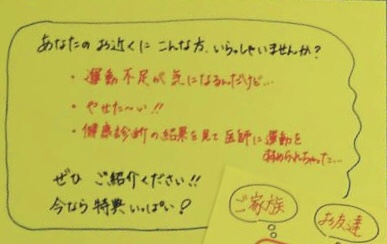 あなたのお近くにこんな方、いらっしゃいませんか?
・運動不足が気になるんだけど…
・やせた〜い!!
・健康診断の結果を見て医師に運動を
勧められちゃった…
ぜひ ご紹介ください!!
今なら特典いっぱい!
ご家族
お友達